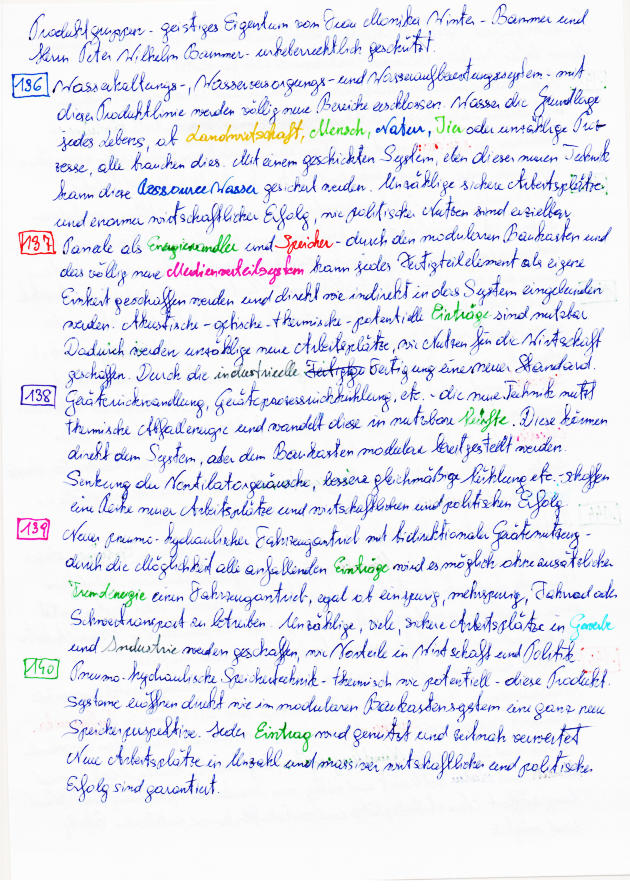 Produktgruppen - geistiges Eigentum von Frau Monika Winter - Bammer und
Herrn Peter Wilhelm Bammer - urheberrechtlich geschützt.
136 Wasserhaltungs-, Wasserversorgungs- und Wasseraufbereitungssystem - mit
dieser Produktlinie werden völlig neue Bereiche erschlossen. Wasser die Grundlage
jedes Lebens, ob Landwirtschaft, Mensch, Natur, Tier oder unzählige Pro-
zesse, alle brauchen dies. Mit einem geschickten System, eben dieser neuen Technik
kann diese Ressource Wasser gesichert werden. Unzählige sichere Arbeitsplätze,
und enormer wirtschaftlicher Erfolg, wie politischer Nutzen sind erzielbar.
137 Paneele als Energiewandler und Speicher - durch den modularen Baukasten und
das völlig neue Medienverteilsystem kann jedes Fertigteilelement als eigene
Einheit geschaffen werden und direkt wie indirekt in das System eingebunden
werden. Akustische - optische - thermische - potentielle Einträge sind nutzbar
Dadurch werden unzählige neue Arbeitsplätze, wie Nutzen für die Wirtschaft
geschaffen. Durch die industrielle Fertigung ein neuer Standard.
138 Geräterückwandlung, Geräteprozessrückkühlung, etc. - die neue Technik nutzt
thermische Abfallenergie und wandelt diese in nutzbare Kräfte. Diese können
direkt dem System, oder dem Baukasten modular bereitgestellt werden.
Senkung der Ventilatorgeräusche, bessere gleichmäßige Kühlung etc. - schaffen
eine Reihe neuer Arbeitsplätze und wirtschaftlichen und politischen Erfolg
139 Neuer pneumo-hydraulischer Fahrzeugantrieb mit bidirektionaler Gerätenutzung -
durch die Möglichkeit alle anfallenden Einträge wird es möglich ohne zusätzlicher
Fremdenergie einen Fahrzeugantrieb, egal ob einspurig, mehrspurig, Fahrrad oder
Schwertransport zu betreiben. Unzählige, viele, sichere Arbeitsplätze in Gewerbe
und Industrie werden geschaffen, wie Vorteile in Wirtschaft und Politik
140 Pneumo-hydraulische Speichertechnik - thermisch wie potentiell - diese Produkt.
Systeme eröffnen direkt wie im modularen Baukastensystem eine ganz neue
Speicherperspektive. Jeder Eintrag wird genutzt und zeitnah verwertet
Neue Arbeitsplätze in Unzahl und massiver wirtschaftlicher und politischer
Erfolg sind garantiert.